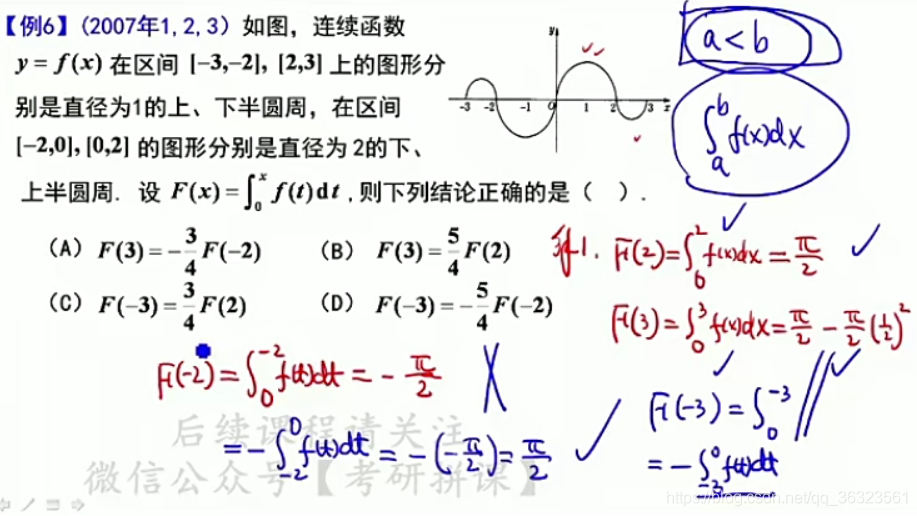 【例6】(2007年1,2,3) 如图，连续函数
y = f(x) 在区间 [-3,-2], [2,3] 上的图形分
别是直径为1的上、下半圆周，在区间
[-2,0], [0,2] 的图形分别是直径为 2的下、
上半圆周. 设 F(x) = ∫₀ˣ f(t)dt ,则下列结论正确的是（ ）.
(A) F(3) = -3/4 F(-2) (B) F(3) = 5/4 F(2)
(C) F(-3) = 3/4 F(2) (D) F(-3) = -5/4 F(-2)
y
-3 -2 -1 0 1 2 3 x
a < b
∫ₐᵇ f(x)dx
1. F(2) = ∫₀² f(x)dx = π/2
F(3) = ∫₀³ f(x)dx = π/2 - π/2 (1/2)²
F(-2) = ∫₀⁻² f(t)dt = - π/2
= - ∫₋₂⁰ f(t)dt = - (-π/2) = π/2
F(-3) = ∫₀⁻³
= - ∫₋₃⁰ f(t)dt
后续课程请关注
微信公众号【考研拼课】
https://blog.csdn.net/qq_36323561